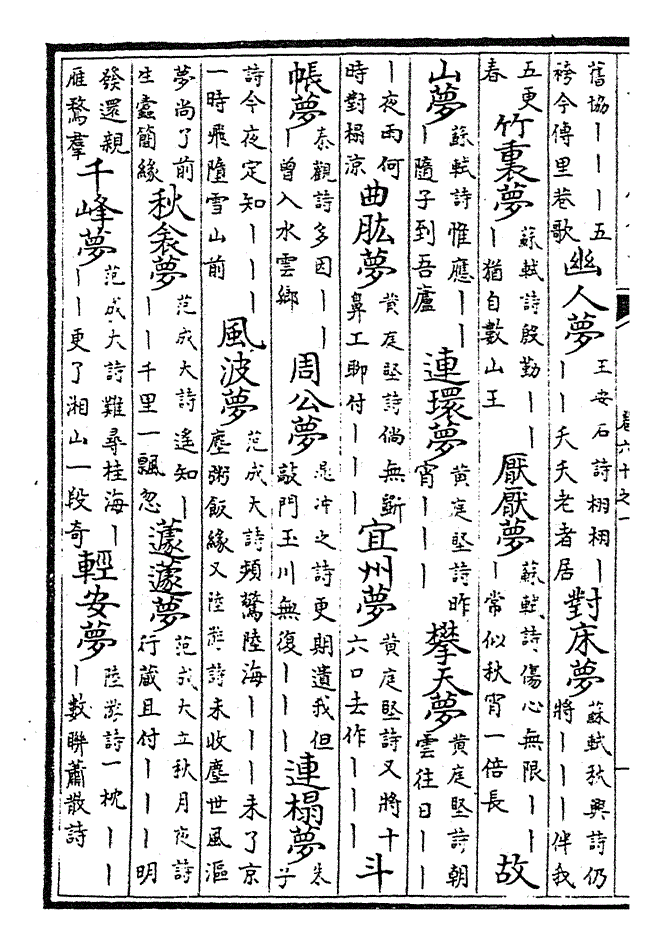 舊協丨丨丨五袴今傳里巷歌幽人夢王安石詩栩栩丨丨丨夭夭老者居對床夢蘇軾秋興詩仍將丨丨丨伴我
五更春竹裏夢蘇軾詩殷勤丨丨丨猶自數山王厭厭夢蘇軾詩傷心無限丨丨丨常似秋宵一倍長故
山夢蘇軾詩惟應丨丨丨隨子到吾廬連環夢黃庭堅詩昨宵丨丨丨攀天夢黃庭堅詩朝雲往日丨丨
丨夜雨何時對榻涼曲肱夢黃庭堅詩倘無斷鼻工聊付丨丨丨宜州夢黃庭堅詩又將十六口去作丨丨丨斗
帳夢秦觀詩多因丨丨丨曾入水雲鄉周公夢晁冲之詩更期遺我但敲門玉川無復丨丨丨連榻夢朱子
詩今夜定知丨丨丨一時飛墮雪山前風波夢范成大詩頻驚陸海丨丨丨未了京塵粥飯緣又陸游詩未收塵世風漚
夢尚了前生蠹簡緣秋衾夢范成大詩遙知丨丨丨千里一飄忽蘧蘧夢范成大立秋月夜詩行藏且付丨丨丨明
發還親雁鶩羣千峰夢范成大詩難尋桂海丨丨丨更了湘山一段奇輕安夢陸游詩一枕丨丨丨數聯蕭散詩